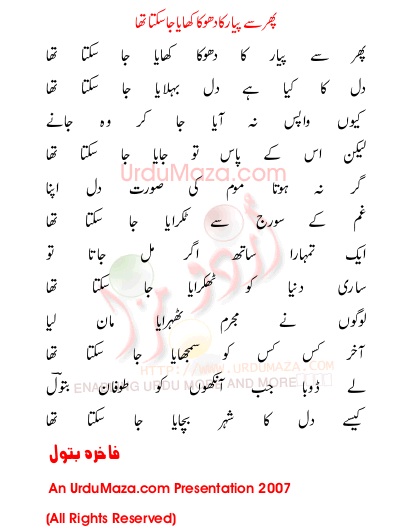 پھر سے پیار کا دھوکا کھایا جا سکتا تھا
پھر سے پیار کا دھوکا کھایا جا سکتا تھا
دل کا کیا ہے دل بہلایا جا سکتا تھا
کیوں واپس نہ آیا جا کر وہ جانے
لیکن اس کے پاس تو جایا جا سکتا تھا
UrduMaza.com
گر نہ ہوتا موم کی صورت دل اپنا
غم کے سورج سے ٹکرایا جا سکتا تھا
اردو مزا
ایک تمہارا ساتھ اگر مل جاتا تو
ساری دنیا کو ٹھکرایا جا سکتا تھا
لوگوں نے مجرم ٹھہرایا مان لیا
آخر کس کس کو سمجھایا جا سکتا تھا
HTTP://WWW.URDUMAZA.COM
ENABLING URDU MORE AND MORE
لے ڈوبا جب آنکھوں کو طوفان بتولؔ
کیسے دل کا شہر بچایا جا سکتا تھا
فاخرہ بتول
An UrduMaza.com Presentation 2007
(All Rights Reserved)